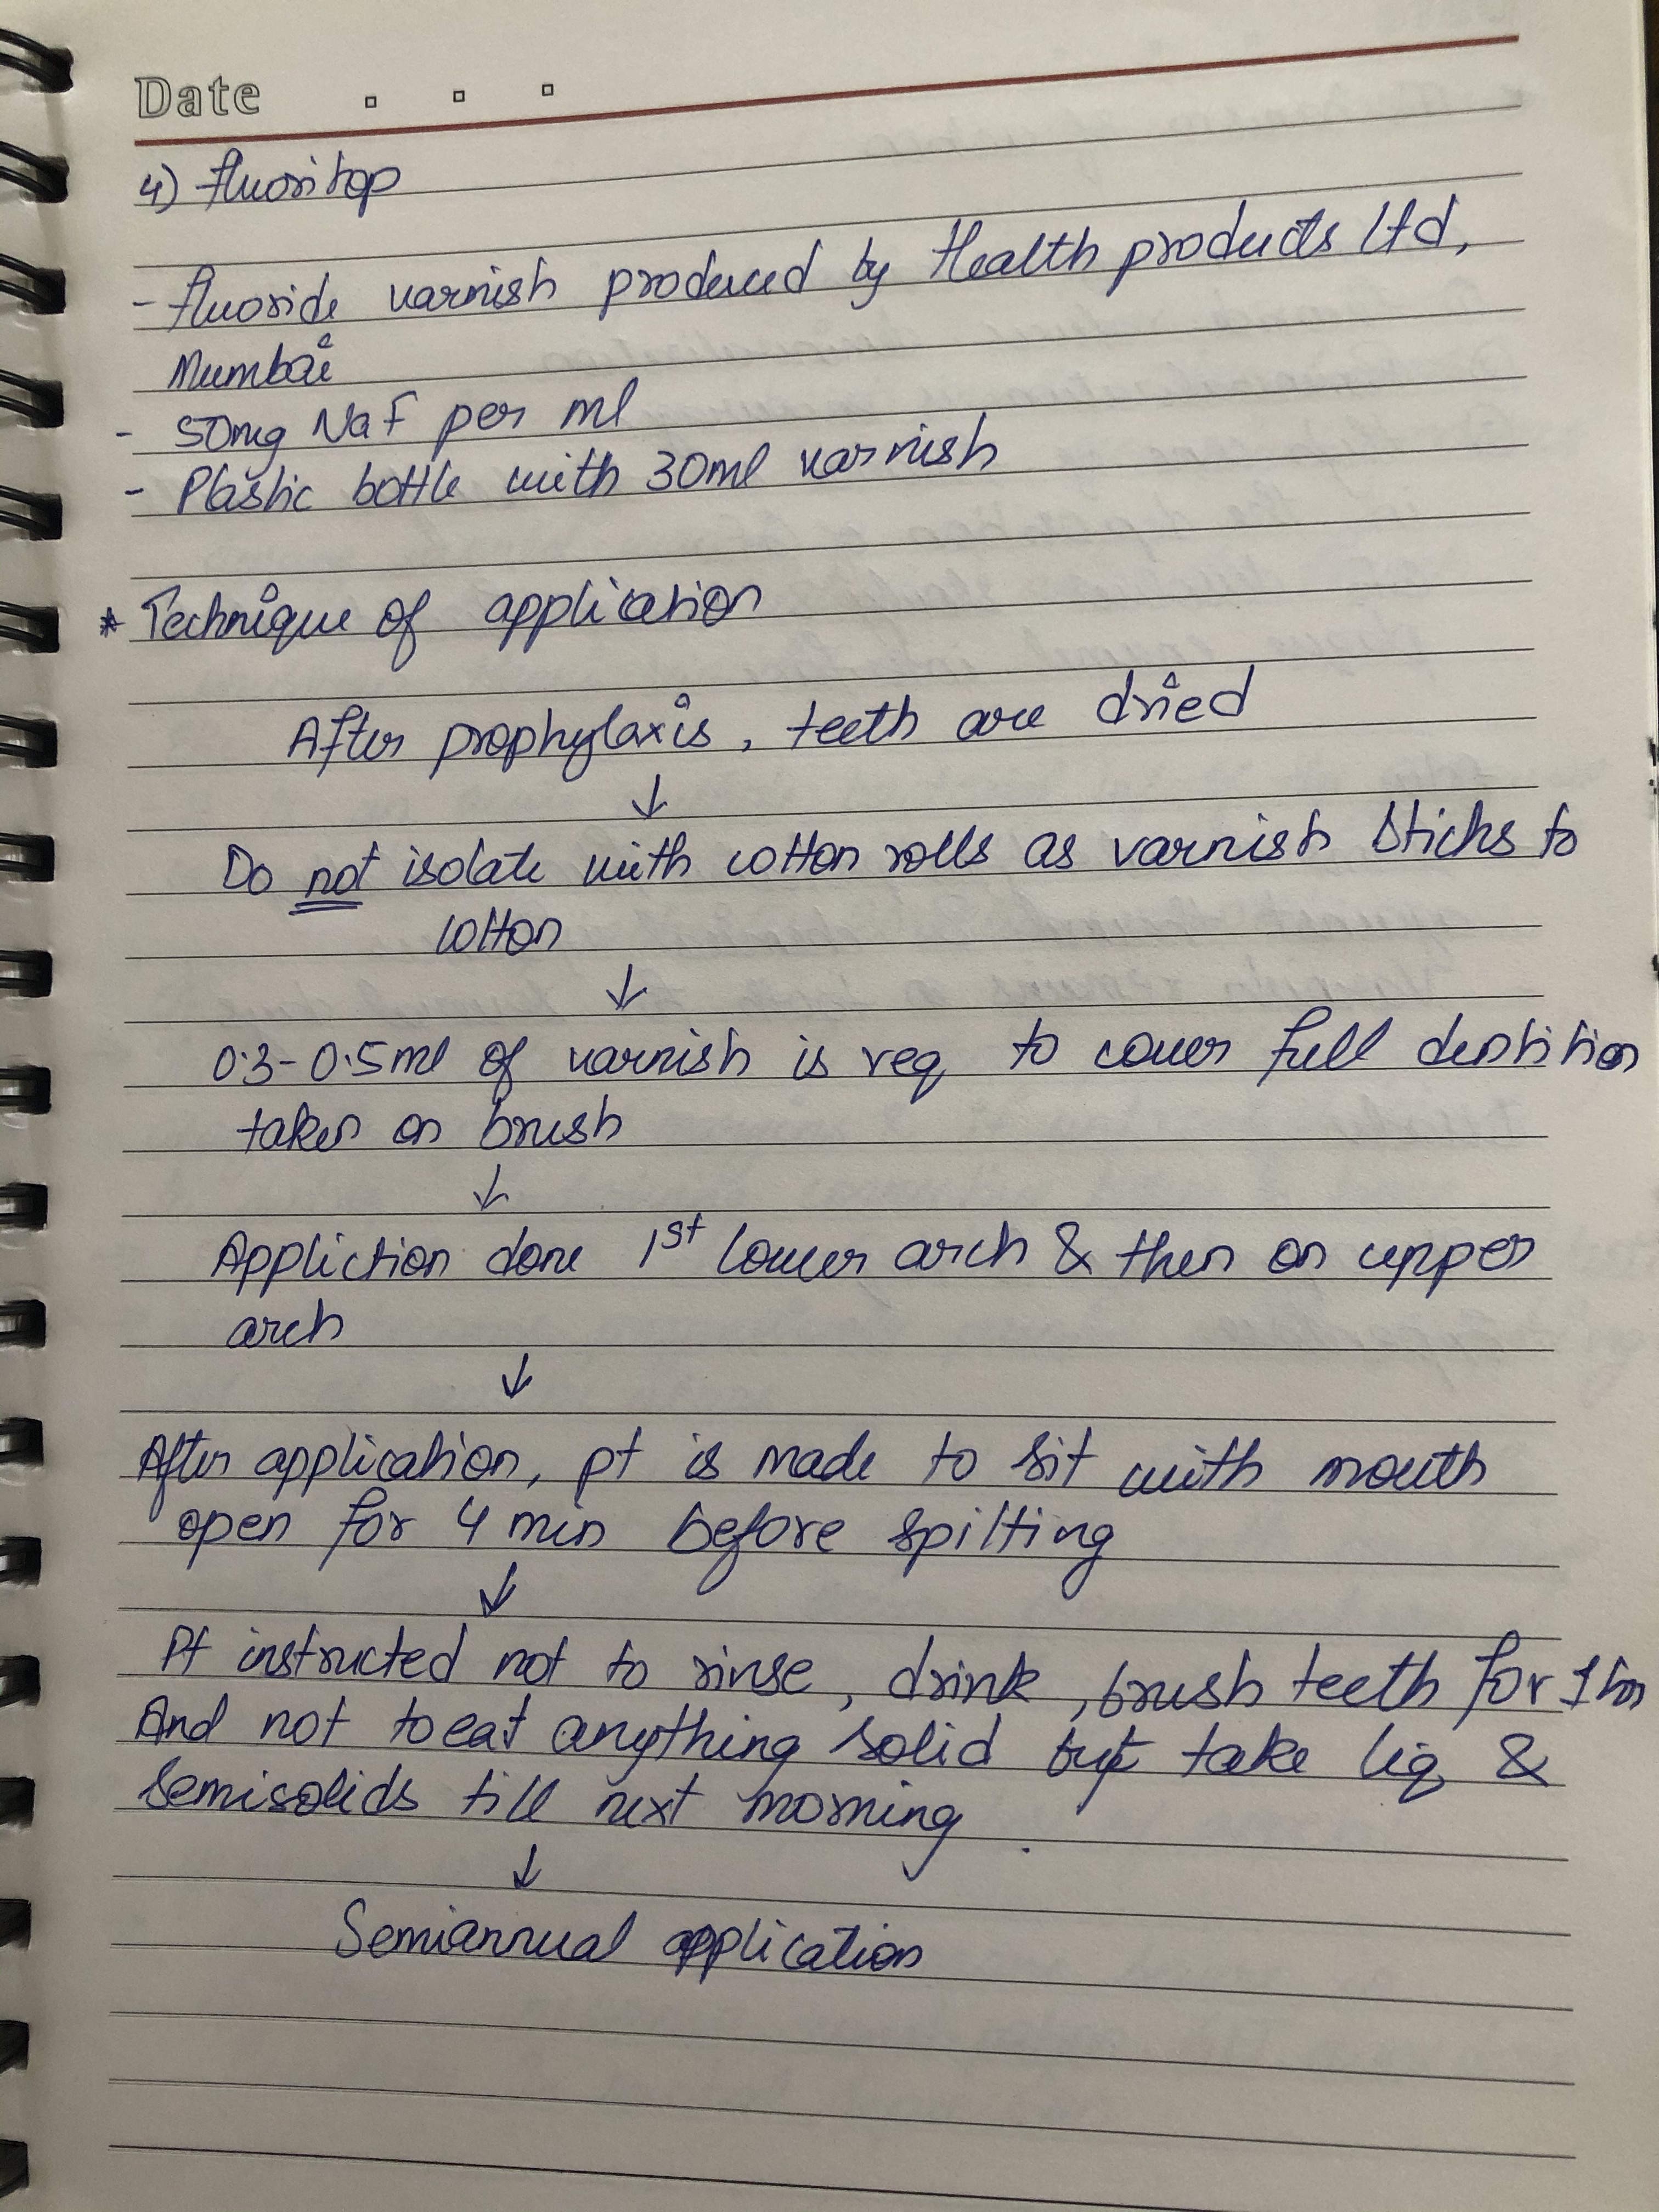 Date
4) Fluoritop
- Fluoride varnish produced by Health products Ltd,
Mumbai
- 50mg NaF per ml
- Plastic bottle with 30ml varnish
* Technique of application
After prophylaxis, teeth are dried
↓
Do not isolate with cotton rolls as varnish sticks to
cotton
↓
0.3-0.5ml of varnish is req to cover full dentition
taken on brush
↓
Appliction done 1st lower arch & then on upper
arch
↓
After application, pt is made to sit with mouth
open for 4 min before spitting
↓
Pt instructed not to rinse, drink, brush teeth for 1 hr
And not to eat anything solid but take liq &
semisolids till next morning.
↓
Semiannual application